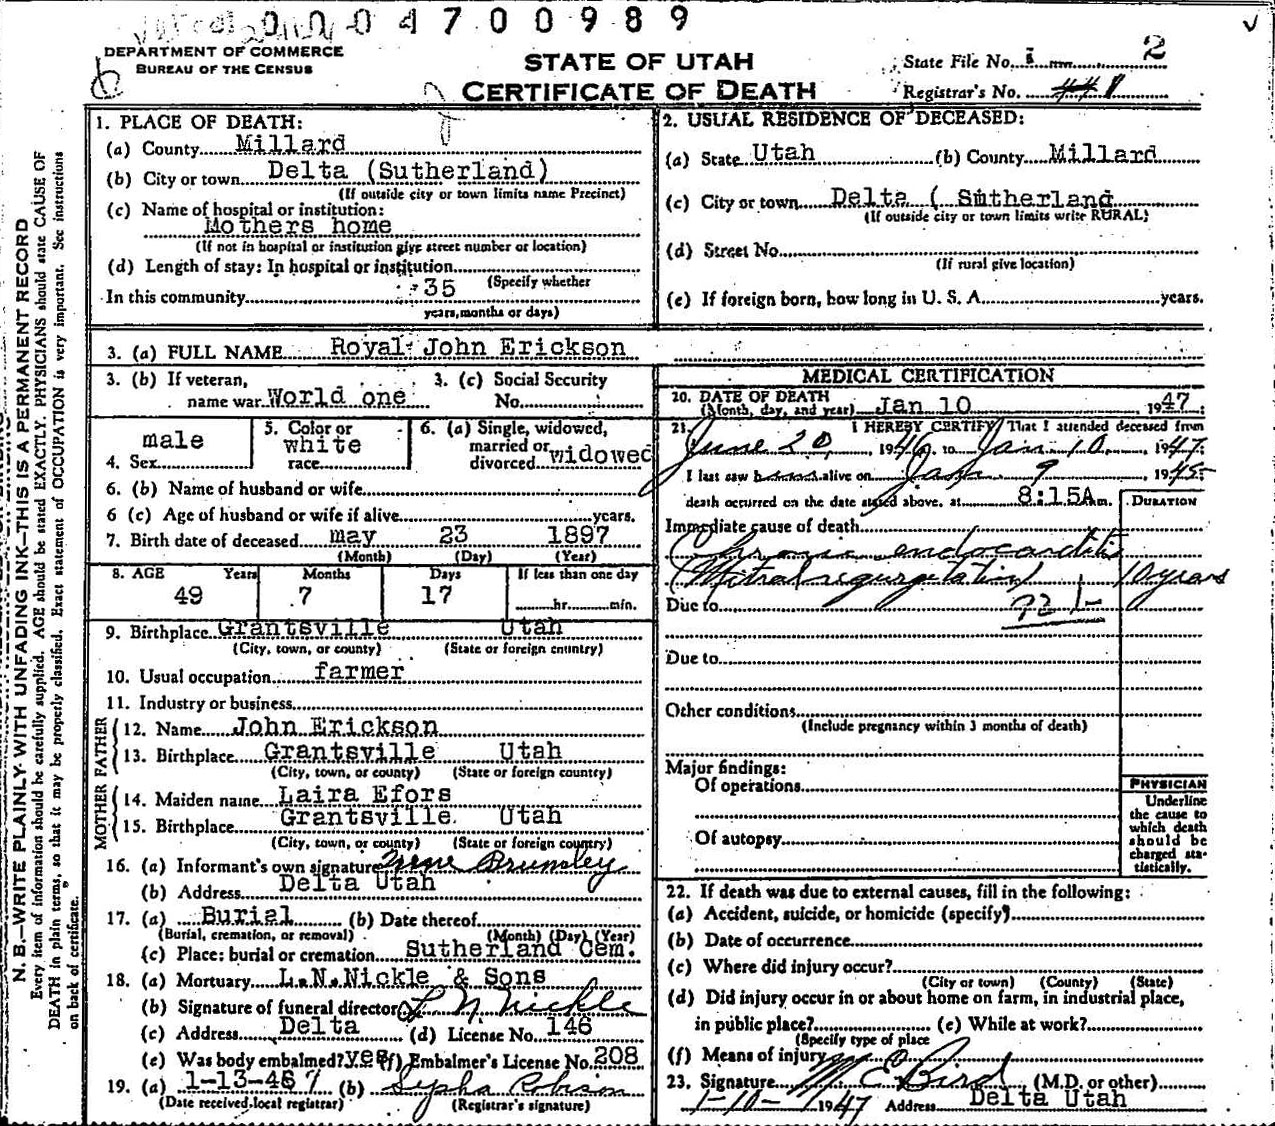 0004700989
DEPARTMENT OF COMMERCE
BUREAU OF THE CENSUS
STATE OF UTAH
CERTIFICATE OF DEATH
State File No. 2
Registrar's No. 1
N. B.—WRITE PLAINLY WITH UNFADING INK—THIS IS A PERMANENT RECORD
Every item of information should be carefully supplied. AGE should be stated EXACTLY. PHYSICIANS should state CAUSE OF
DEATH in plain terms, so that it may be properly classified. Exact statement of OCCUPATION is very important. See instructions
on back of certificate.
1. PLACE OF DEATH:
(a) County Millard
(b) City or town Delta (Sutherland)
(If outside city or town limits name Precinct)
(c) Name of hospital or institution:
Mothers home
(If not in hospital or institution give street number or location)
(d) Length of stay: In hospital or institution
(Specify whether
In this community 35
years, months or days)
2. USUAL RESIDENCE OF DECEASED:
(a) State Utah (b) County Millard
(c) City or town Delta ( Sutherland
(If outside city or town limits write RURAL)
(d) Street No.
(If rural give location)
(e) If foreign born, how long in U. S. A. years.
3. (a) FULL NAME Royal John Erickson
3. (b) If veteran, name war World one
3. (c) Social Security No.
4. Sex male
5. Color or race white
6. (a) Single, widowed, married or divorced widowed
6. (b) Name of husband or wife
6 (c) Age of husband or wife if alive years.
7. Birth date of deceased may 23 1897
(Month) (Day) (Year)
8. AGE Years Months Days If less than one day
49 7 17 hr. min.
9. Birthplace Grantsville Utah
(City, town, or county) (State or foreign country)
10. Usual occupation farmer
11. Industry or business
FATHER
12. Name John Erickson
13. Birthplace Grantsville Utah
(City, town, or county) (State or foreign country)
MOTHER
14. Maiden name Laira Efors
15. Birthplace Grantsville Utah
(City, town, or county) (State or foreign country)
16. (a) Informant's own signature Irene Brumley
(b) Address Delta Utah
17. (a) Burial (b) Date thereof
(Burial, cremation, or removal) (Month) (Day) (Year)
(c) Place: burial or cremation Sutherland Cem.
18. (a) Mortuary L.N.Nickle & Sons
(b) Signature of funeral director L N Nickle
(c) Address Delta (d) License No. 146
(e) Was body embalmed? yes (f) Embalmer's License No. 208
19. (a) 1-13-47 (b) Sypha Robison
(Date received local registrar) (Registrar's signature)
MEDICAL CERTIFICATION
20. DATE OF DEATH
(Month, day, and year) Jan 10 1947
21. I HEREBY CERTIFY That I attended deceased from
June 20, 1946, to Jan 10, 1947
I last saw him alive on Jan. 9 1945
death occurred on the date stated above, at 8:15A m.
DURATION
Immediate cause of death
Chronic endocarditis
Mitral regurgitation 10 years
Due to 92
Due to
Other conditions
(Include pregnancy within 3 months of death)
Major findings:
Of operations
Of autopsy
PHYSICIAN
Underline
the cause to
which death
should be
charged sta-
tistically.
22. If death was due to external causes, fill in the following:
(a) Accident, suicide, or homicide (specify)
(b) Date of occurrence
(c) Where did injury occur?
(City or town) (County) (State)
(d) Did injury occur in or about home on farm, in industrial place,
in public place? (e) While at work?
(Specify type of place
(f) Means of injury
23. Signature M E Bird (M.D. or other)
1-10-1947 Address Delta Utah